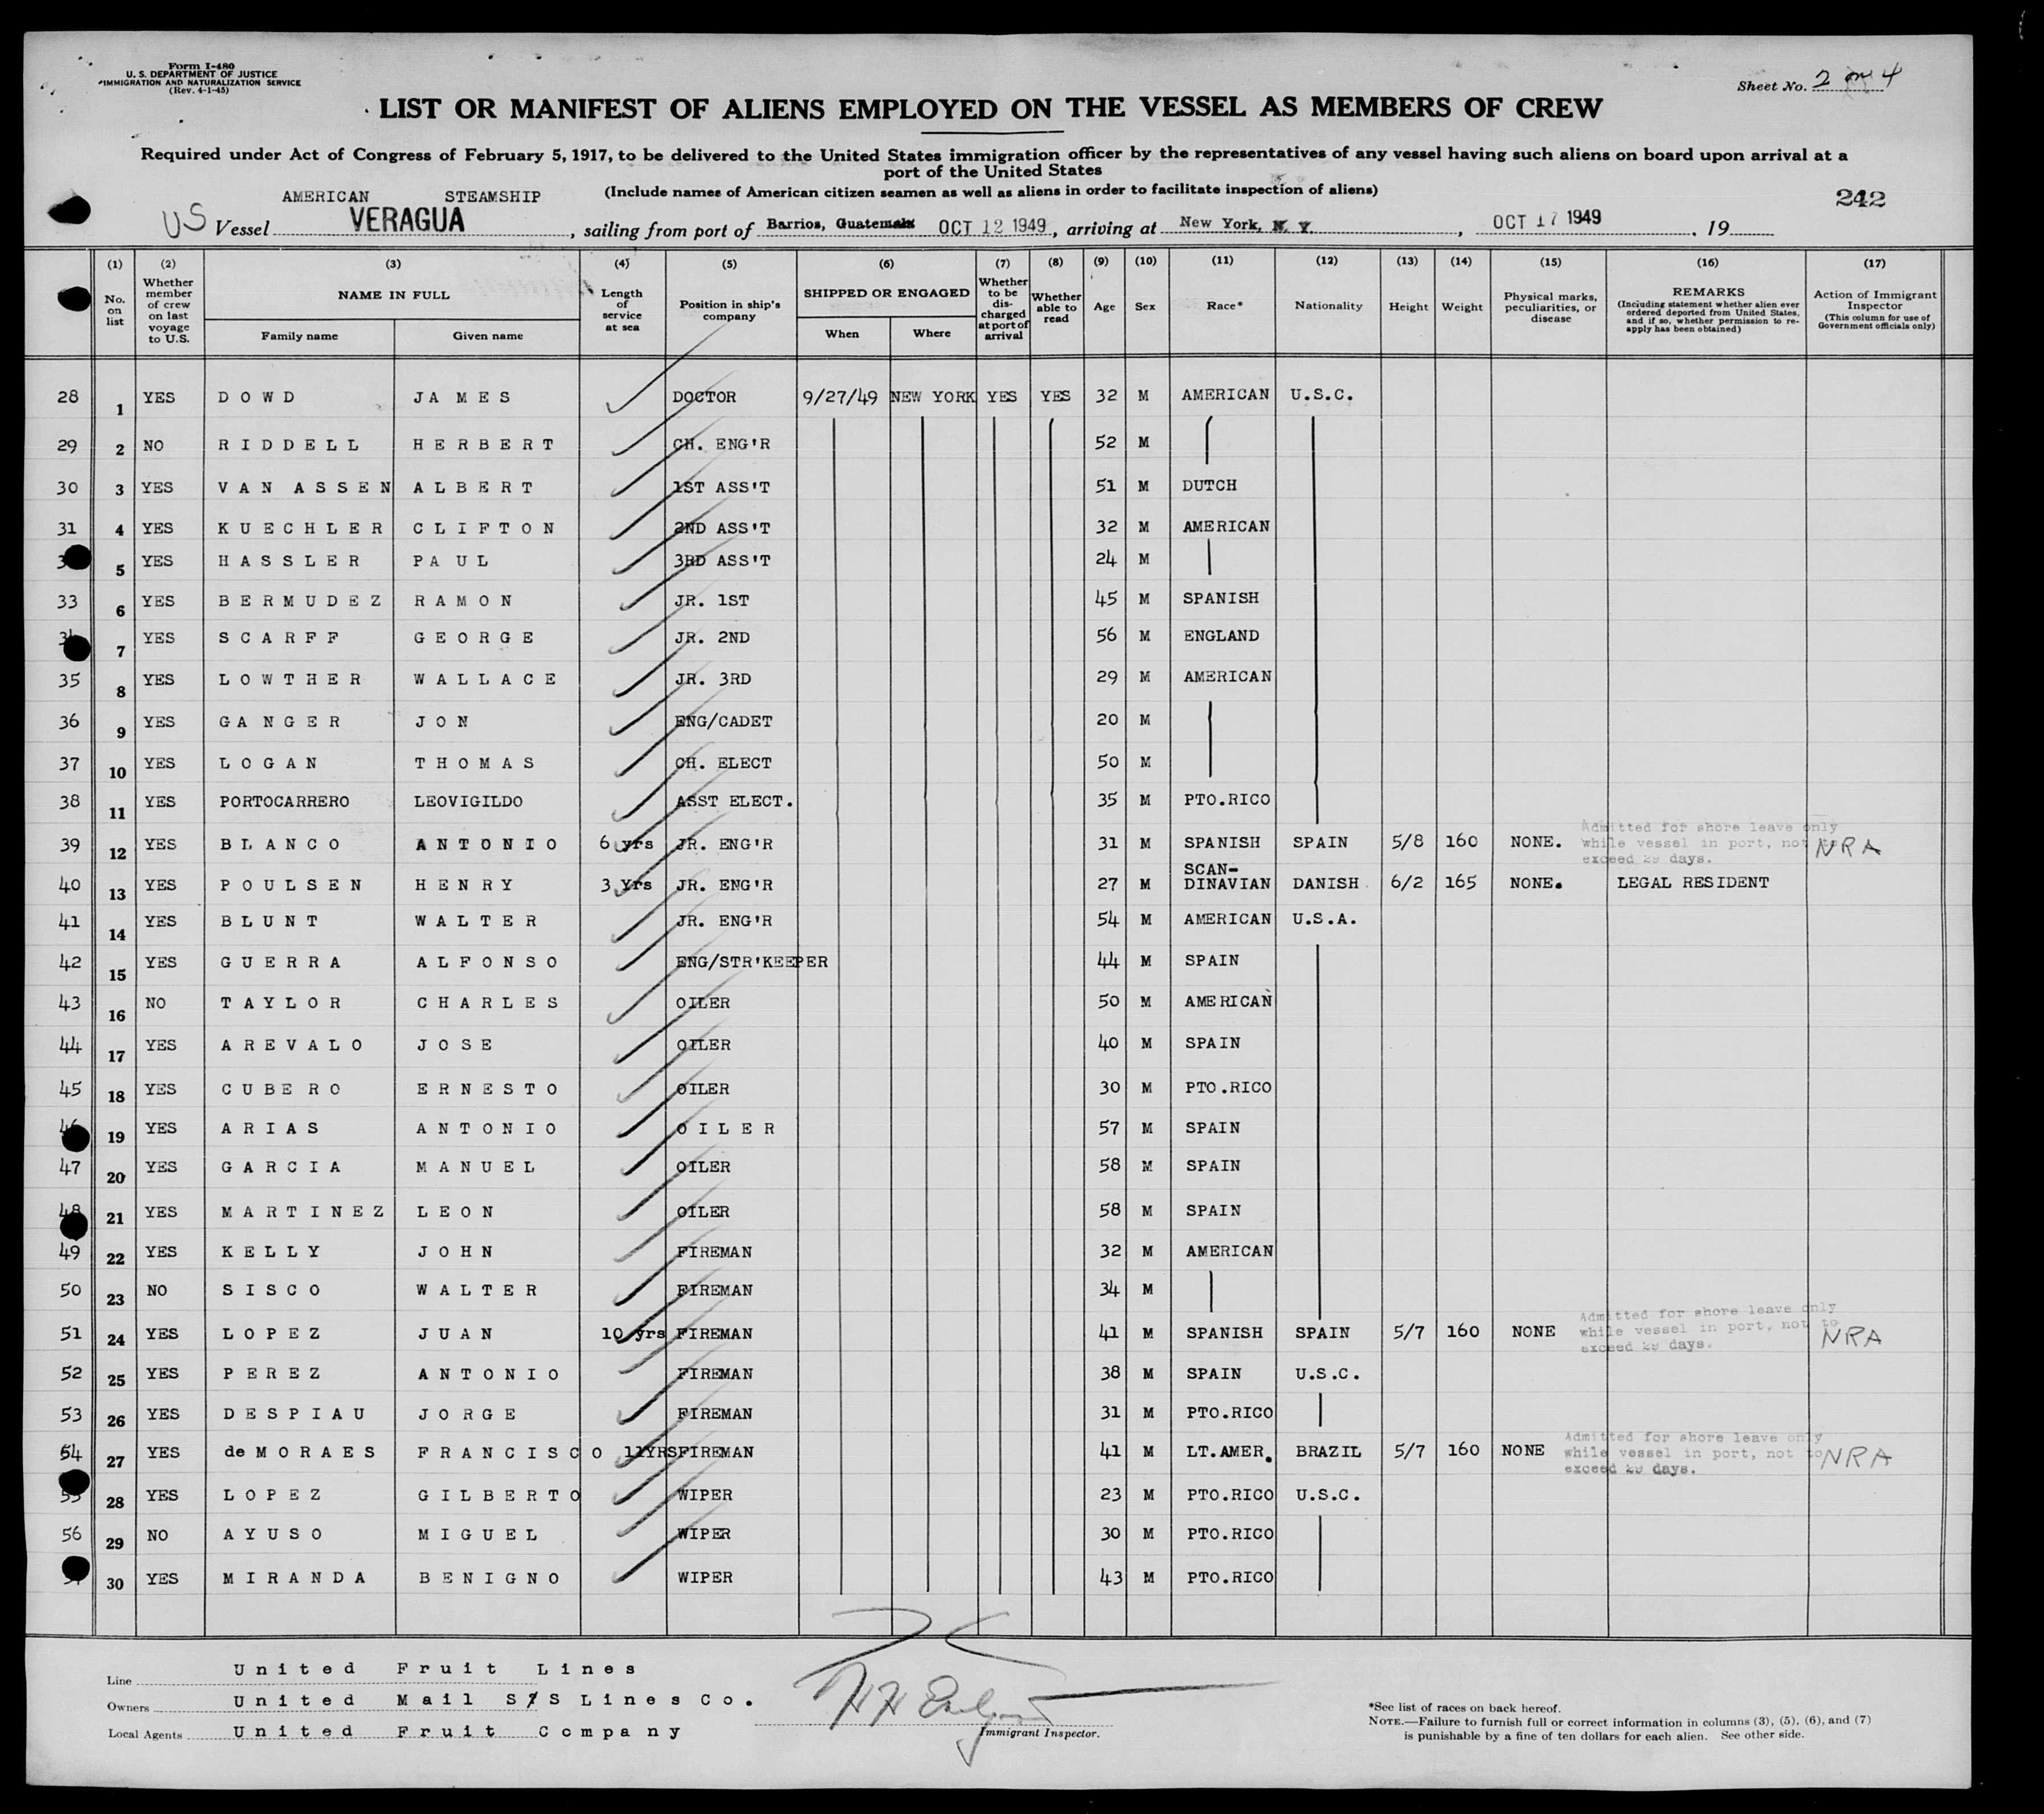 Form I-480
U. S. DEPARTMENT OF JUSTICE
IMMIGRATION AND NATURALIZATION SERVICE
(Rev. 4-1-45)
Sheet No. 2 on 4
LIST OR MANIFEST OF ALIENS EMPLOYED ON THE VESSEL AS MEMBERS OF CREW
Required under Act of Congress of February 5, 1917, to be delivered to the United States immigration officer by the representatives of any vessel having such aliens on board upon arrival at a
port of the United States
(Include names of American citizen seamen as well as aliens in order to facilitate inspection of aliens)
242
AMERICAN STEAMSHIP
US Vessel VERAGUA, sailing from port of Barrios, Guatemala OCT 12 1949, arriving at New York, N. Y., OCT 17 1949, 19
(1) No. on list
(2) Whether member of crew on last voyage to U.S.
(3) NAME IN FULL Family name Given name
(4) Length of service at sea
(5) Position in ship's company
(6) SHIPPED OR ENGAGED When Where
(7) Whether to be discharged at port of arrival
(8) Whether able to read
(9) Age
(10) Sex
(11) Race*
(12) Nationality
(13) Height
(14) Weight
(15) Physical marks, peculiarities, or disease
(16) REMARKS (Including statement whether alien ever ordered deported from United States, and if so, whether permission to reapply has been obtained)
(17) Action of Immigrant Inspector (This column for use of Government officials only)
28 1 YES DOWD JAMES DOCTOR 9/27/49 NEW YORK YES YES 32 M AMERICAN U.S.C.
29 2 NO RIDDELL HERBERT CH. ENG'R 52 M
30 3 YES VAN ASSEN ALBERT 1ST ASS'T 51 M DUTCH
31 4 YES KUECHLER CLIFTON 2ND ASS'T 32 M AMERICAN
5 YES HASSLER PAUL 3RD ASS'T 24 M
33 6 YES BERMUDEZ RAMON JR. 1ST 45 M SPANISH
7 YES SCARFF GEORGE JR. 2ND 56 M ENGLAND
35 8 YES LOWTHER WALLACE JR. 3RD 29 M AMERICAN
36 9 YES GANGER JON ENG/CADET 20 M
37 10 YES LOGAN THOMAS CH. ELECT 50 M
38 11 YES PORTOCARRERO LEOVIGILDO ASST ELECT. 35 M PTO.RICO
39 12 YES BLANCO ANTONIO 6 yrs JR. ENG'R 31 M SPANISH SPAIN 5/8 160 NONE. Admitted for shore leave only while vessel in port, not to exceed 29 days. NRA
40 13 YES POULSEN HENRY 3 Yrs JR. ENG'R 27 M SCAN-DINAVIAN DANISH 6/2 165 NONE. LEGAL RESIDENT
41 14 YES BLUNT WALTER JR. ENG'R 54 M AMERICAN U.S.A.
42 15 YES GUERRA ALFONSO ENG/STR'KEEPER 44 M SPAIN
43 16 NO TAYLOR CHARLES OILER 50 M AMERICAN
44 17 YES AREVALO JOSE OILER 40 M SPAIN
45 18 YES CUBERO ERNESTO OILER 30 M PTO.RICO
46 19 YES ARIAS ANTONIO OILER 57 M SPAIN
47 20 YES GARCIA MANUEL OILER 58 M SPAIN
48 21 YES MARTINEZ LEON OILER 58 M SPAIN
49 22 YES KELLY JOHN FIREMAN 32 M AMERICAN
50 23 NO SISCO WALTER FIREMAN 34 M
51 24 YES LOPEZ JUAN 10 yrs FIREMAN 41 M SPANISH SPAIN 5/7 160 NONE Admitted for shore leave only while vessel in port, not to exceed 29 days. NRA
52 25 YES PEREZ ANTONIO FIREMAN 38 M SPAIN U.S.C.
53 26 YES DESPIAU JORGE FIREMAN 31 M PTO.RICO
54 27 YES deMORAES FRANCISCO 11YRS FIREMAN 41 M LT.AMER. BRAZIL 5/7 160 NONE Admitted for shore leave only while vessel in port, not to exceed 29 days. NRA
55 28 YES LOPEZ GILBERTO WIPER 23 M PTO.RICO U.S.C.
56 29 NO AYUSO MIGUEL WIPER 30 M PTO.RICO
30 YES MIRANDA BENIGNO WIPER 43 M PTO.RICO
Line United Fruit Lines
Owners United Mail S/S Lines Co.
Local Agents United Fruit Company
Immigrant Inspector.
*See list of races on back hereof.
NOTE.—Failure to furnish full or correct information in columns (3), (5), (6), and (7)
is punishable by a fine of ten dollars for each alien. See other side.